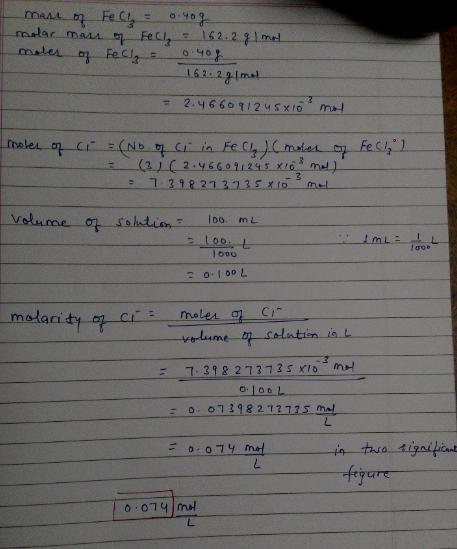 mass of FeCl3 = 0.40g
molar mass of FeCl3 = 162.2g/mol
moles of FeCl3 = 0.40g
162.2g/mol
= 2.466091245×10⁻³ mol
moles of Cl⁻ = (No. of Cl⁻ in FeCl3)(moles of FeCl3)
= (3)(2.466091245×10⁻³ mol)
= 7.398273735×10⁻³ mol
Volume of solution = 100. mL
= 100. L ∵ 1mL = 1/1000 L
1000
= 0.100L
molarity of Cl⁻ = moles of Cl⁻
volume of solution in L
= 7.398273735×10⁻³ mol
0.100L
= 0.07398273735 mol/L
= 0.074 mol/L in two significant
figure
0.074 mol/L